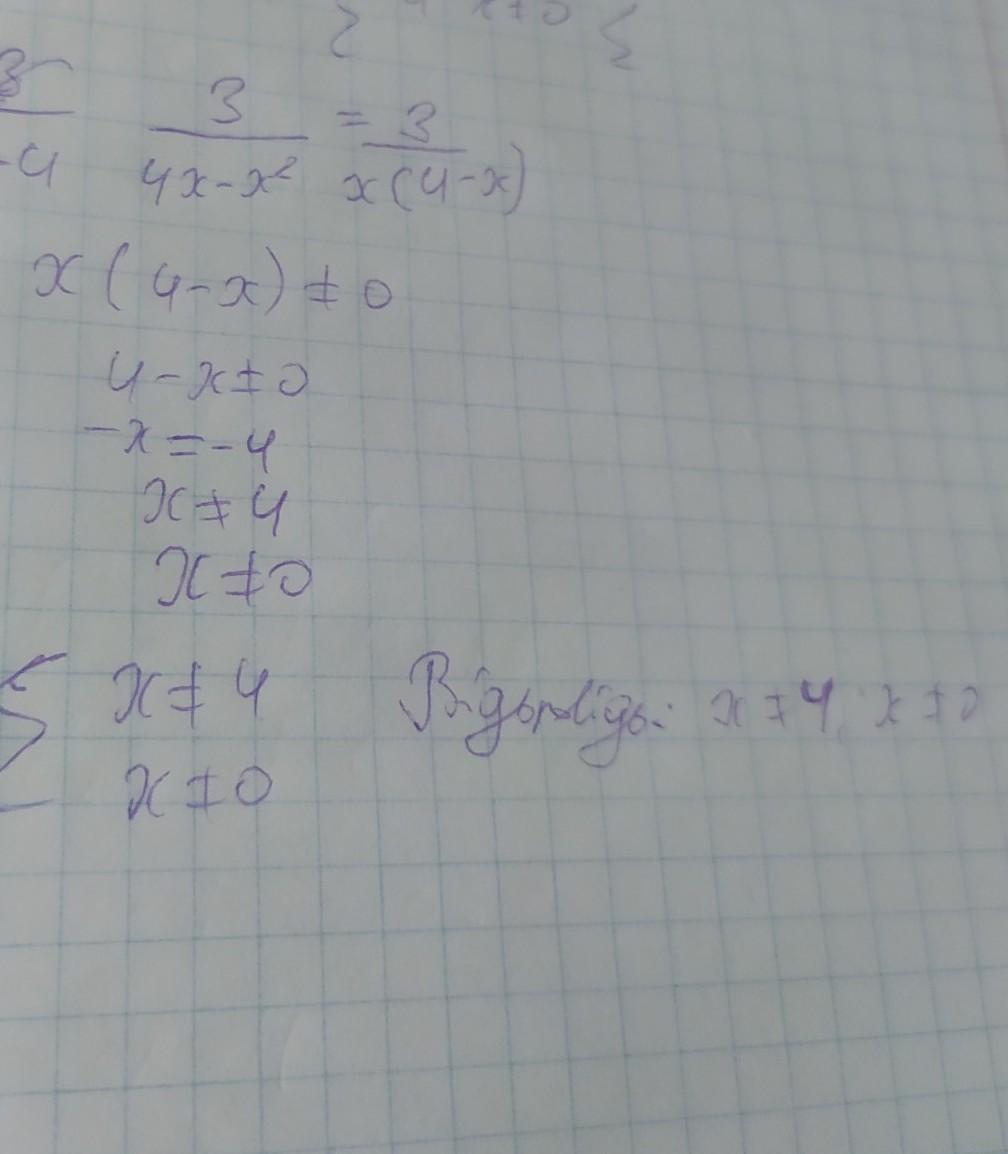 x≠0
3/-4 3/(4x-x²) = 3/(x(4-x))
x(4-x)≠0
4-x≠0
-x=-4
x≠4
x≠0
x≠4 Відповідь: x≠4, x≠0
x≠0